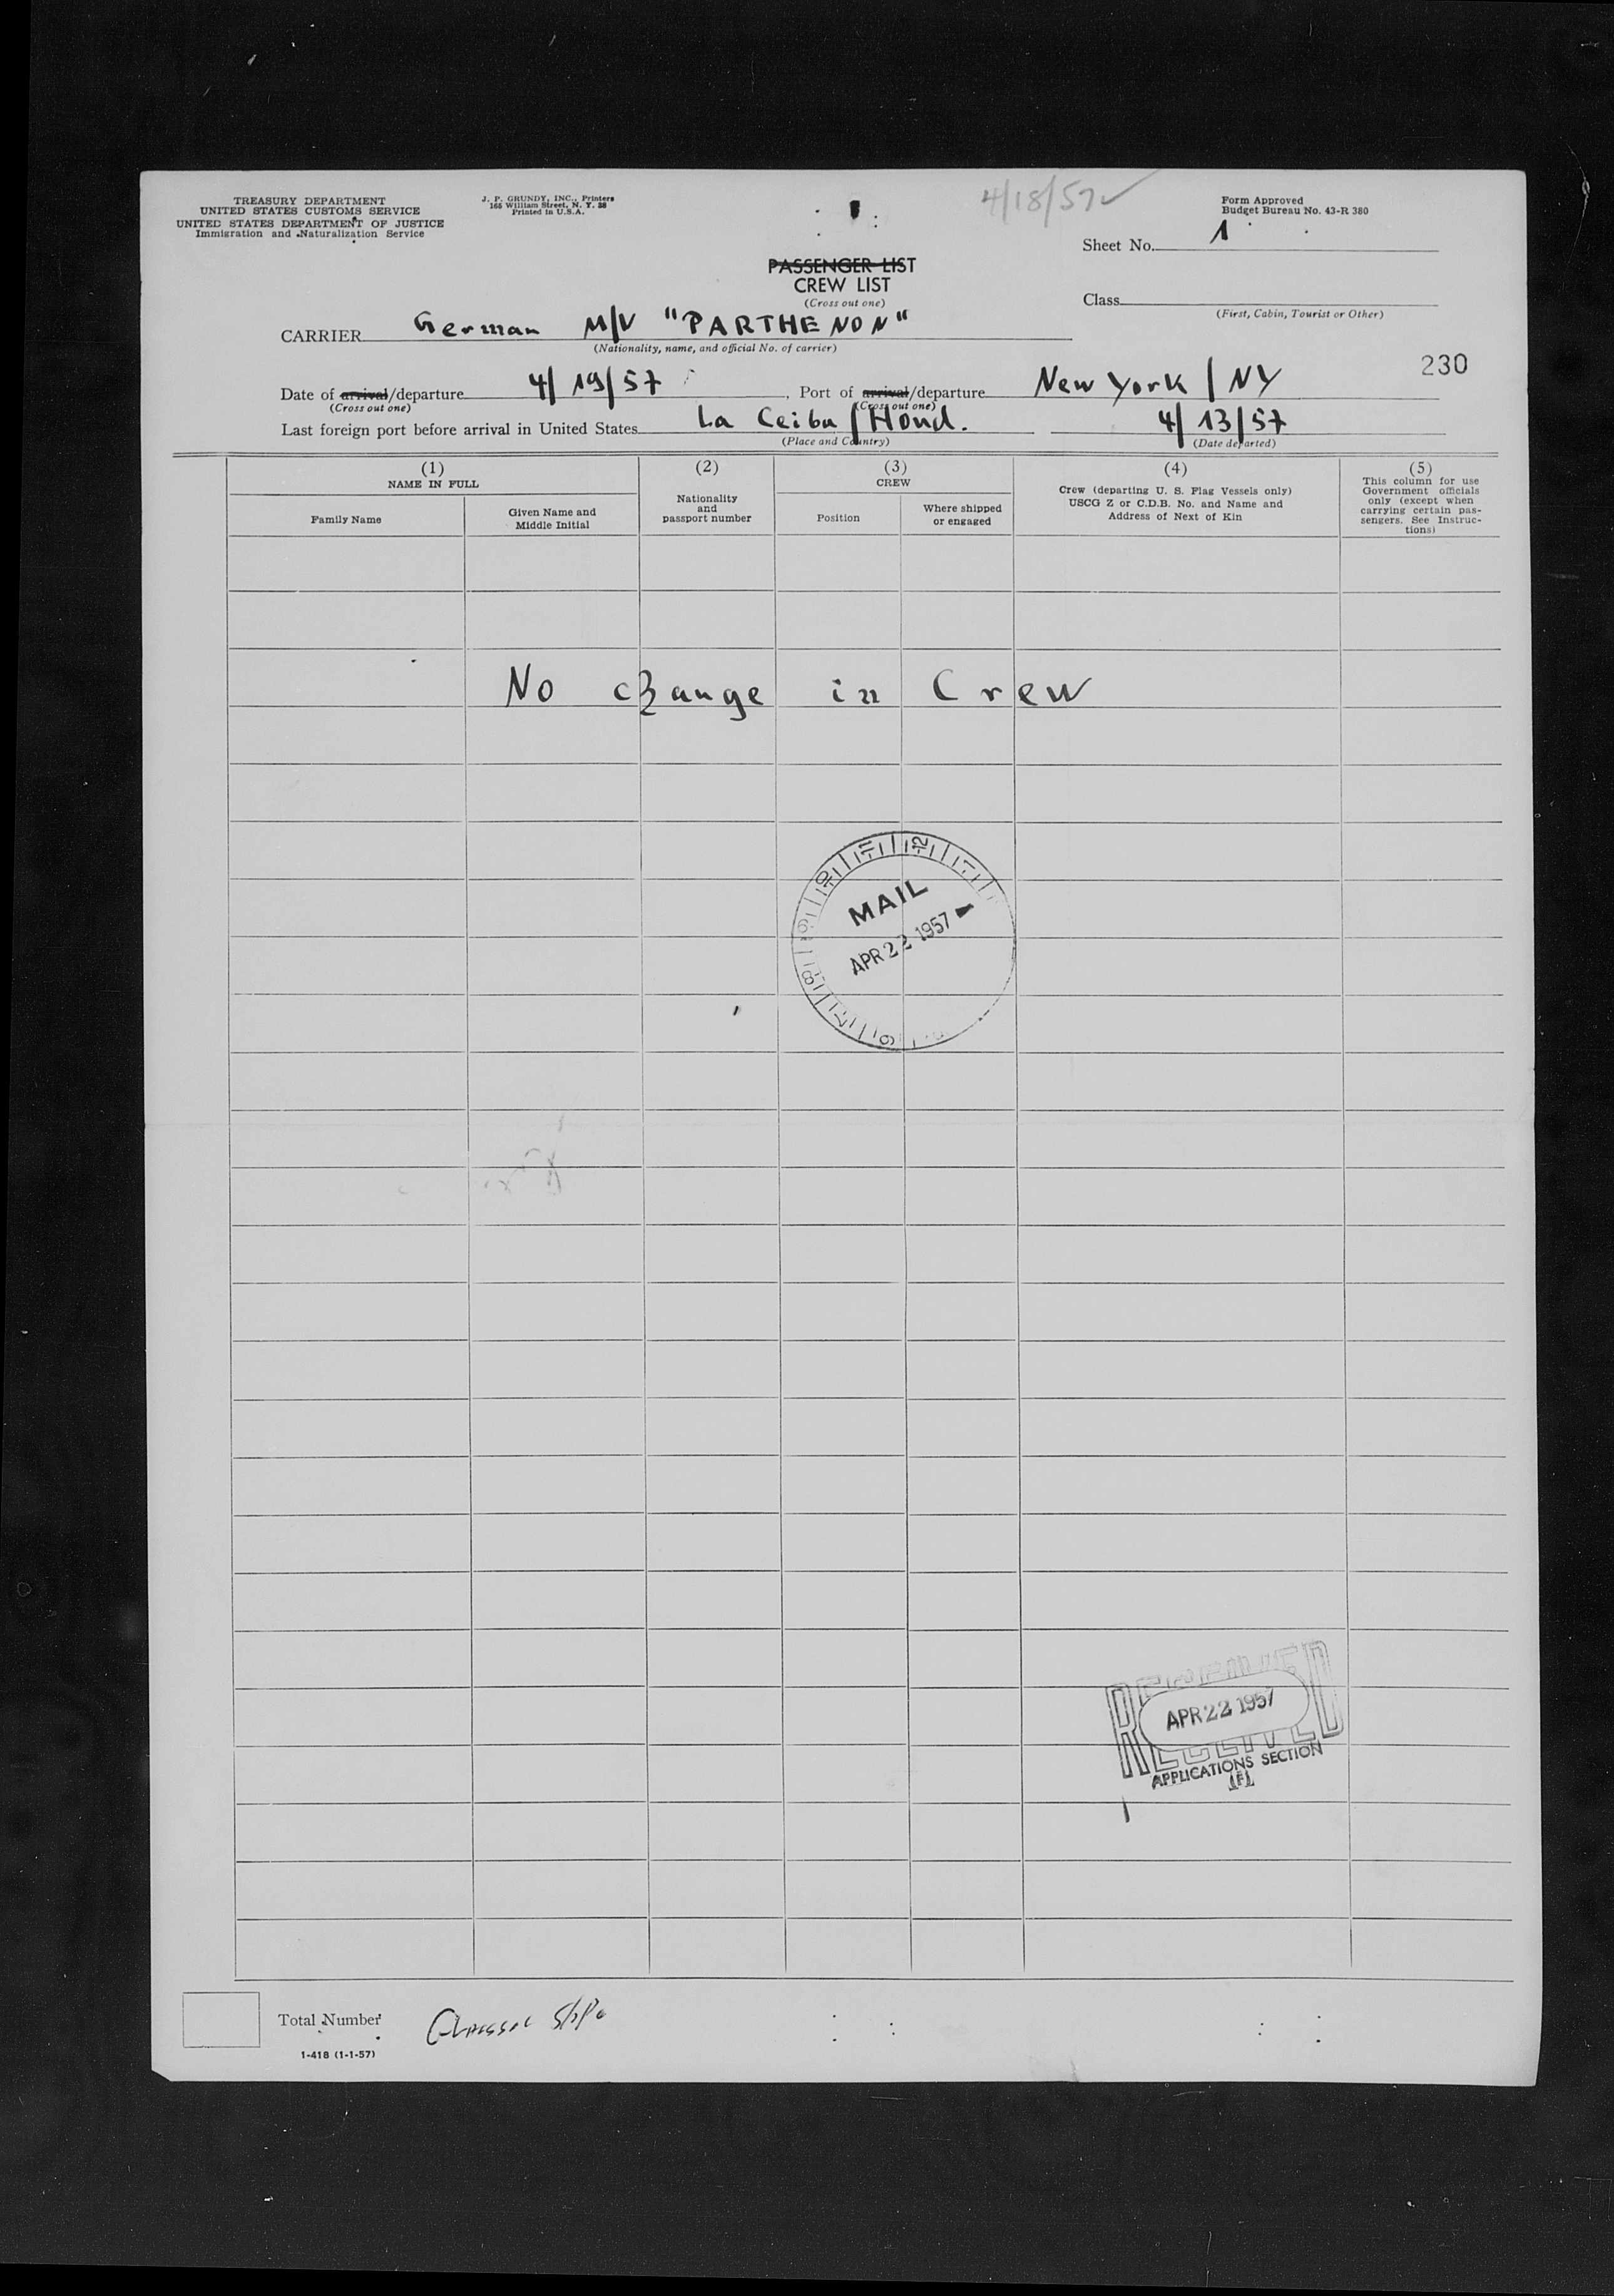 TREASURY DEPARTMENT
UNITED STATES CUSTOMS SERVICE
UNITED STATES DEPARTMENT OF JUSTICE
Immigration and Naturalization Service
J. P. GRUNDY, INC., Printers
165 William Street, N. Y. 38
Printed in U.S.A.
4/18/57
Form Approved
Budget Bureau No. 43-R 380
Sheet No. 1
PASSENGER LIST
CREW LIST
(Cross out one)
Class
(First, Cabin, Tourist or Other)
CARRIER German M/V "PARTHENON"
(Nationality, name, and official No. of carrier)
230
Date of arrival/departure 4/19/57, Port of arrival/departure New York / NY
(Cross out one) (Cross out one)
Last foreign port before arrival in United States La Ceiba / Hond. 4/13/57
(Place and Country) (Date departed)
(1)
NAME IN FULL
Family Name
Given Name and
Middle Initial
(2)
Nationality
and
passport number
(3)
CREW
Position
Where shipped
or engaged
(4)
Crew (departing U. S. Flag Vessels only)
USCG Z or C.D.B. No. and Name and
Address of Next of Kin
(5)
This column for use
Government officials
only (except when
carrying certain pas-
sengers. See Instruc-
tions)
No change in Crew
MAIL
APR 22 1957
RECEIVED
APR 22 1957
APPLICATIONS SECTION
Total Number
1-418 (1-1-57)